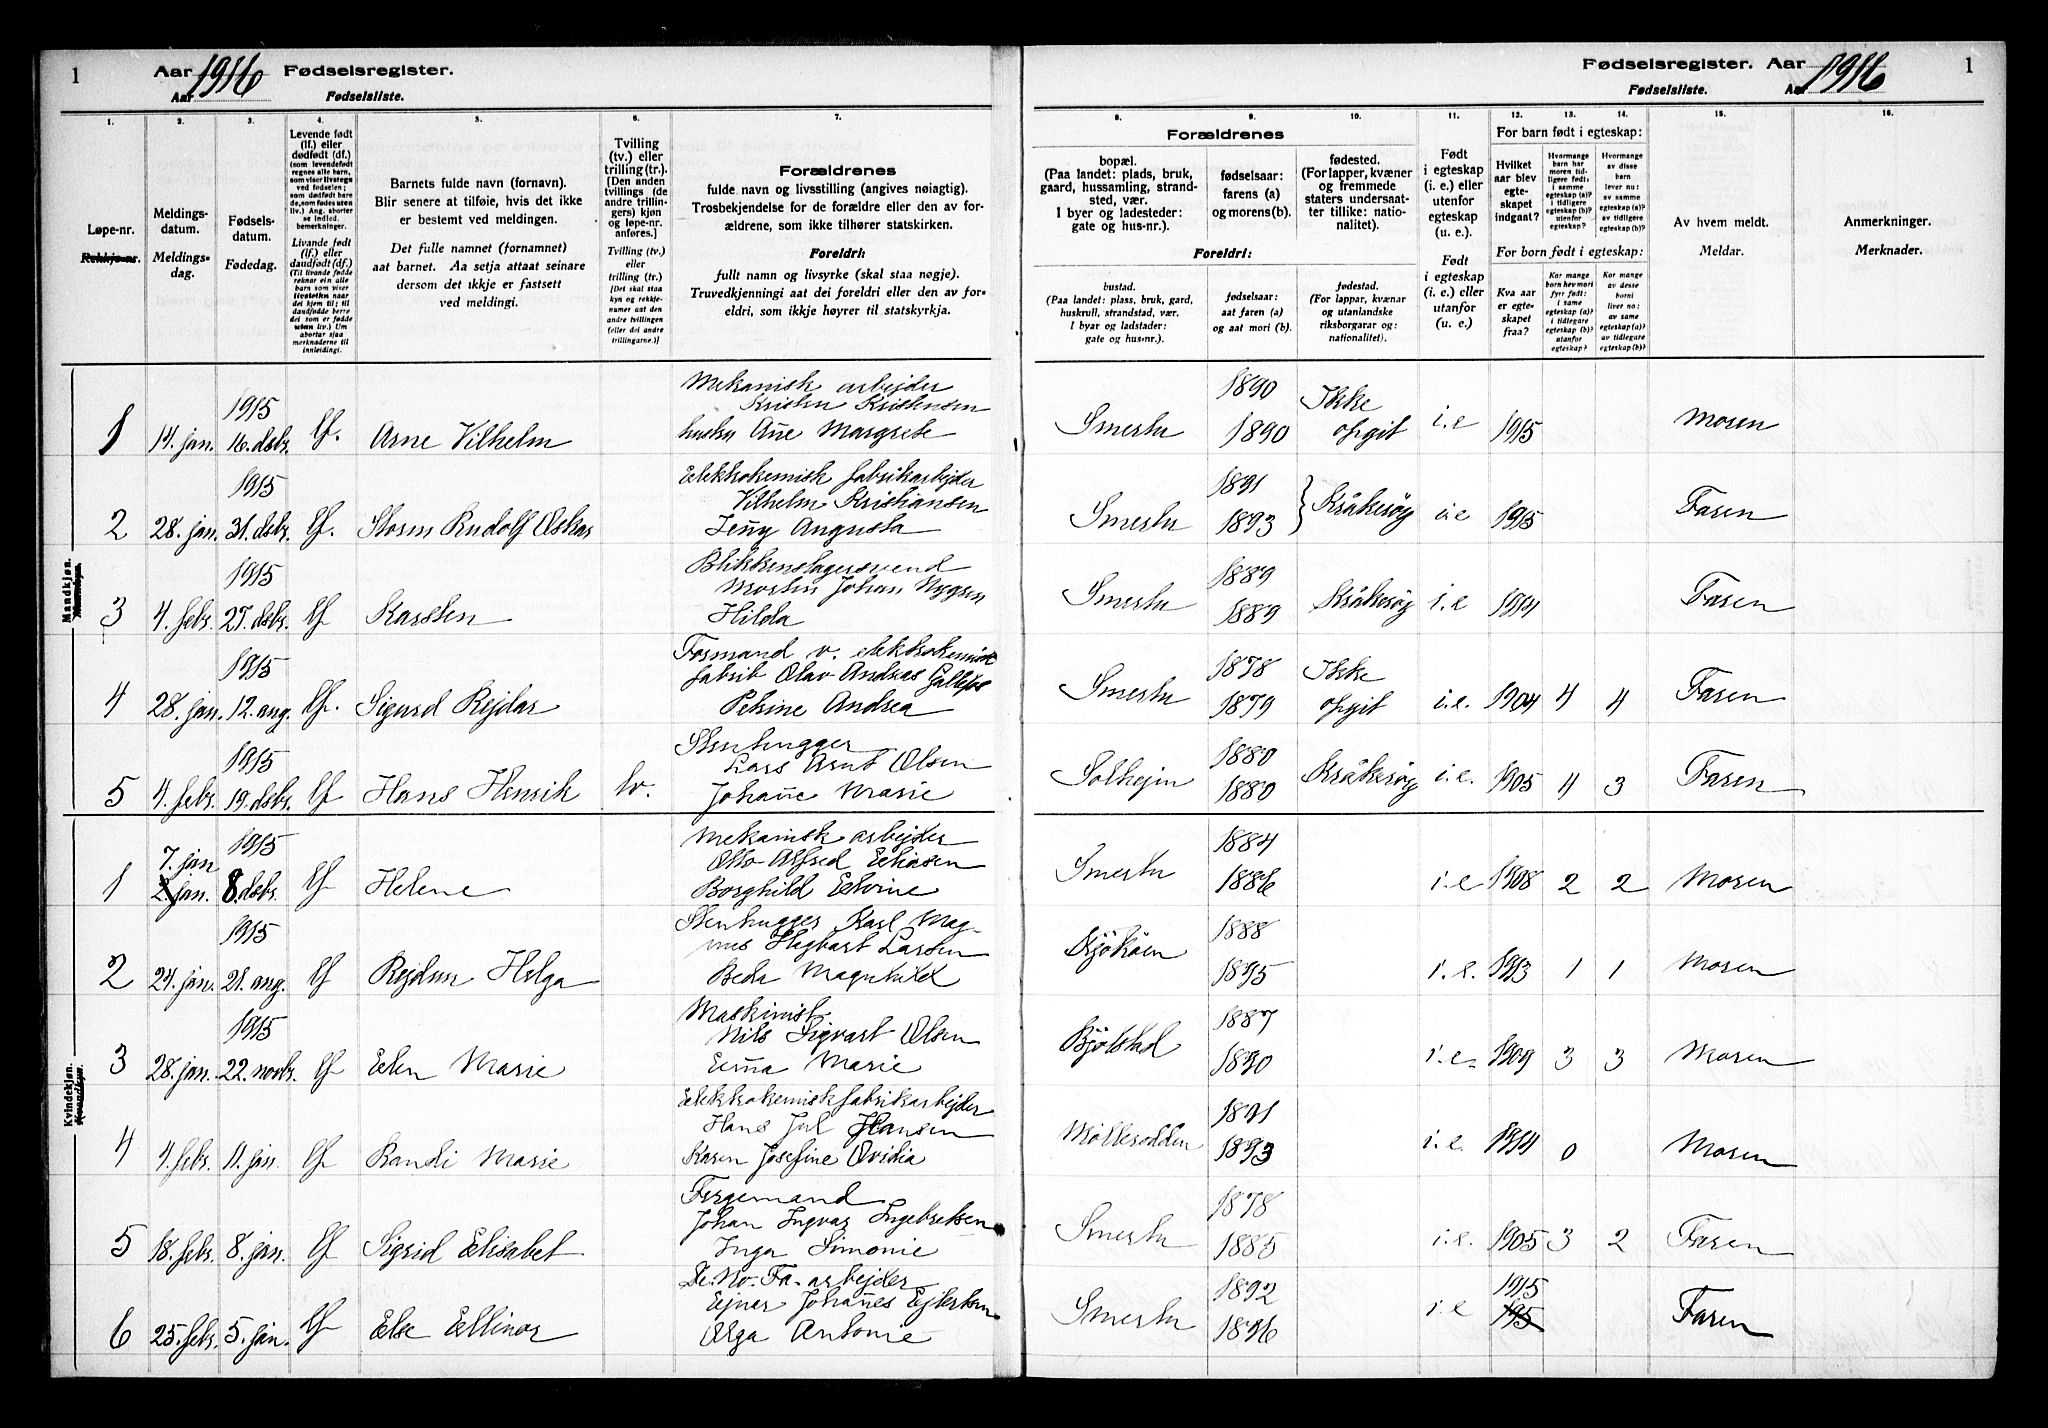 1 Aar 1916 Fødselsregister.
Aar Fødselsliste.
Fødselsregister. Aar 1916 1
Fødselsliste. Aar
1.
Løpe-nr.
Rekkje-nr.
2.
Meldings-
datum.
Meldings-
dag.
3.
Fødsels-
datum.
Fødedag.
4.
Levende født
(lf.) eller
dødfødt (df.)
(som levendefødt
regnes alle barn,
som viser livstegn
ved fødselen;
som dødfødt barn
Ang. aborter
se indled.
bemerkninger.
Livande født
(lf.) eller
daudfødt (df.)
5.
Barnets fulde navn (fornavn).
Blir senere at tilføie, hvis det ikke
er bestemt ved meldingen.
Det fulle namnet (fornamnet)
aat barnet. Aa setja attaat seinare
dersom det ikkje er fastsett
ved meldingi.
6.
Tvilling
(tv.) eller
trilling (tr.).
[Den anden
tvillings (de
andre trillin-
gers) kjøn
og løpe-nr.
anføres.]
Tvilling (tv.)
eller
trilling (tr.)
[Det skal staa
kyn og rekkje-
numer aat den
andre tvillingen
(eller dei andre
trillingarne.)]
7.
Forældrenes
fulde navn og livsstilling (angives nøiagtig).
Trosbekjendelse for de forældre eller den av for-
ældrene, som ikke tilhører statskirken.
Foreldri:
fullt namn og livsyrke (skal staa nøgje).
Truvedkjenningi aat dei foreldri eller den av for-
eldri, som ikkje høyrer til statskyrkja.
8.
9.
10.
Forældrenes
bopæl.
(Paa landet: plads, bruk,
gaard, hussamling, strand-
sted, vær.
I byer og ladesteder:
gate og hus-nr.).
fødselsaar:
farens (a)
og morens (b).
fødested.
(For lapper, kvæner
og fremmede
staters undersaat-
ter tillike: natio-
nalitet).
Foreldri:
bustad.
(Paa landet: plass, bruk, gard,
huskrull, strandstad, vær.
I byar og ladstader:
gate og hus-nr.).
fødselsaar:
aat faren (a)
og aat mori (b).
fødestad.
(For lappar, kvænar
og utanlandske
riksborgarar og:
nationalitet).
11.
Født
i egteskap
(i. e.) eller
utenfor
egteskap
(u. e.).
Født
i egteskap
(i. e.) eller
utanfor
(u. e.).
12.
13.
14.
For barn født i egteskap:
Hvilket
aar blev
egte-
skapet
indgaat?
Hvormange
barn har
moren tid-
ligere født:
i samme
egteskap (a)?
i tidligere
egteskap (b)?
utenfor
egteskap?
Hvormange
av disse
barn
lever nu:
av samme
egteskap (a)?
av tidligere
egteskap (b)?
For born født i egteskap:
Kva aar
er egte-
skapet
fraa?
Kor mange
born hev mori
fyrr født:
i same
egteskap (a)?
i tidlegare
egteskap (b)?
utanfor
egteskap?
Kor mange
av desse
borni
liver no:
av same
egteskap (a)?
av tidlegare
egteskap (b)?
15.
Av hvem meldt.
Meldar.
16.
Anmerkninger.
Merknader.
Mandkjøn.
1 14. jan. 1915 16. dsbr. lf. Arne Vilhelm Mekanisk arbejder Kristen Kristensen hustru Ane Margrete Smertu 1890 1890 Ikke opgit i.e 1915 Moren
2 28. jan. 1915 31. dsbr. lf. Storm Rudolf Oskar Elektrokemisk fabrikarbejder Vilhelm Kristiansen Jeny Augusta Smertu 1891 1893 Kråkerøy i.e 1915 Faren
3 4. febr. 1915 27. dsbr. lf Karsten Blikkenslagersvend Morten Johan Nygren Hilda Smertu 1889 1889 Kråkerøy i.e 1914 Faren
4 28. jan. 1915 12. aug. lf. Sigurd Rejdar Formand v. elektrokemisk fabrik Olav Andreas Petrine Andrea Smertu 1878 1879 Ikke opgit i.e. 1904 4 4 Faren
5 4. febr. 1915 19. dsbr. lf Hans Henrik tv. Stenhugger Lars Arnt Olsen Johane Marie Solhejm 1880 1880 Kråkerøy i.e. 1905 4 3 Faren
Kvindekjøn.
1 7. jan 2. jan. 1915 8. dsbr. lf Helene Mekanisk arbejder Otto Alfred Eliasen Borghild Elvine Smertu 1884 1886 i.e 1908 2 2 Moren
2 24. jan. 1915 21. aug. lf Rejdun Helga Stenhugger Karl Mag- nus Hagbart Larsen Beda Magnhild Kjøkøen 1888 1895 i.e. 1913 1 1 Moren
3 28. jan. 1915 22. novbr. lf Elen Marie Maskinist Nils Sigvart Olsen Ema Marie Bjølstad 1887 1890 i.e. 1909 3 3 Moren
4 4. febr. 11. jan. lf Randi Marie Elektrokemisk fabrikarbejder Hans Jul Hansen Karen Josefine Ovidia Mollerodden 1891 1893 i.e. 1914 0 Moren
5 18. febr. 8. jan. lf Sigrid Elisabet Fergemand Johan Ingvar Ingebretsen Inga Simonie Smertu 1878 1885 i.e. 1905 3 2 Faren
6 25. febr. 5. jan. lf Else Ellinor De. No. Fa. arbejder Ejnar Johanes Ejlertsen Olga Antonie Smertu 1892 1896 i.e 1915 195 Faren